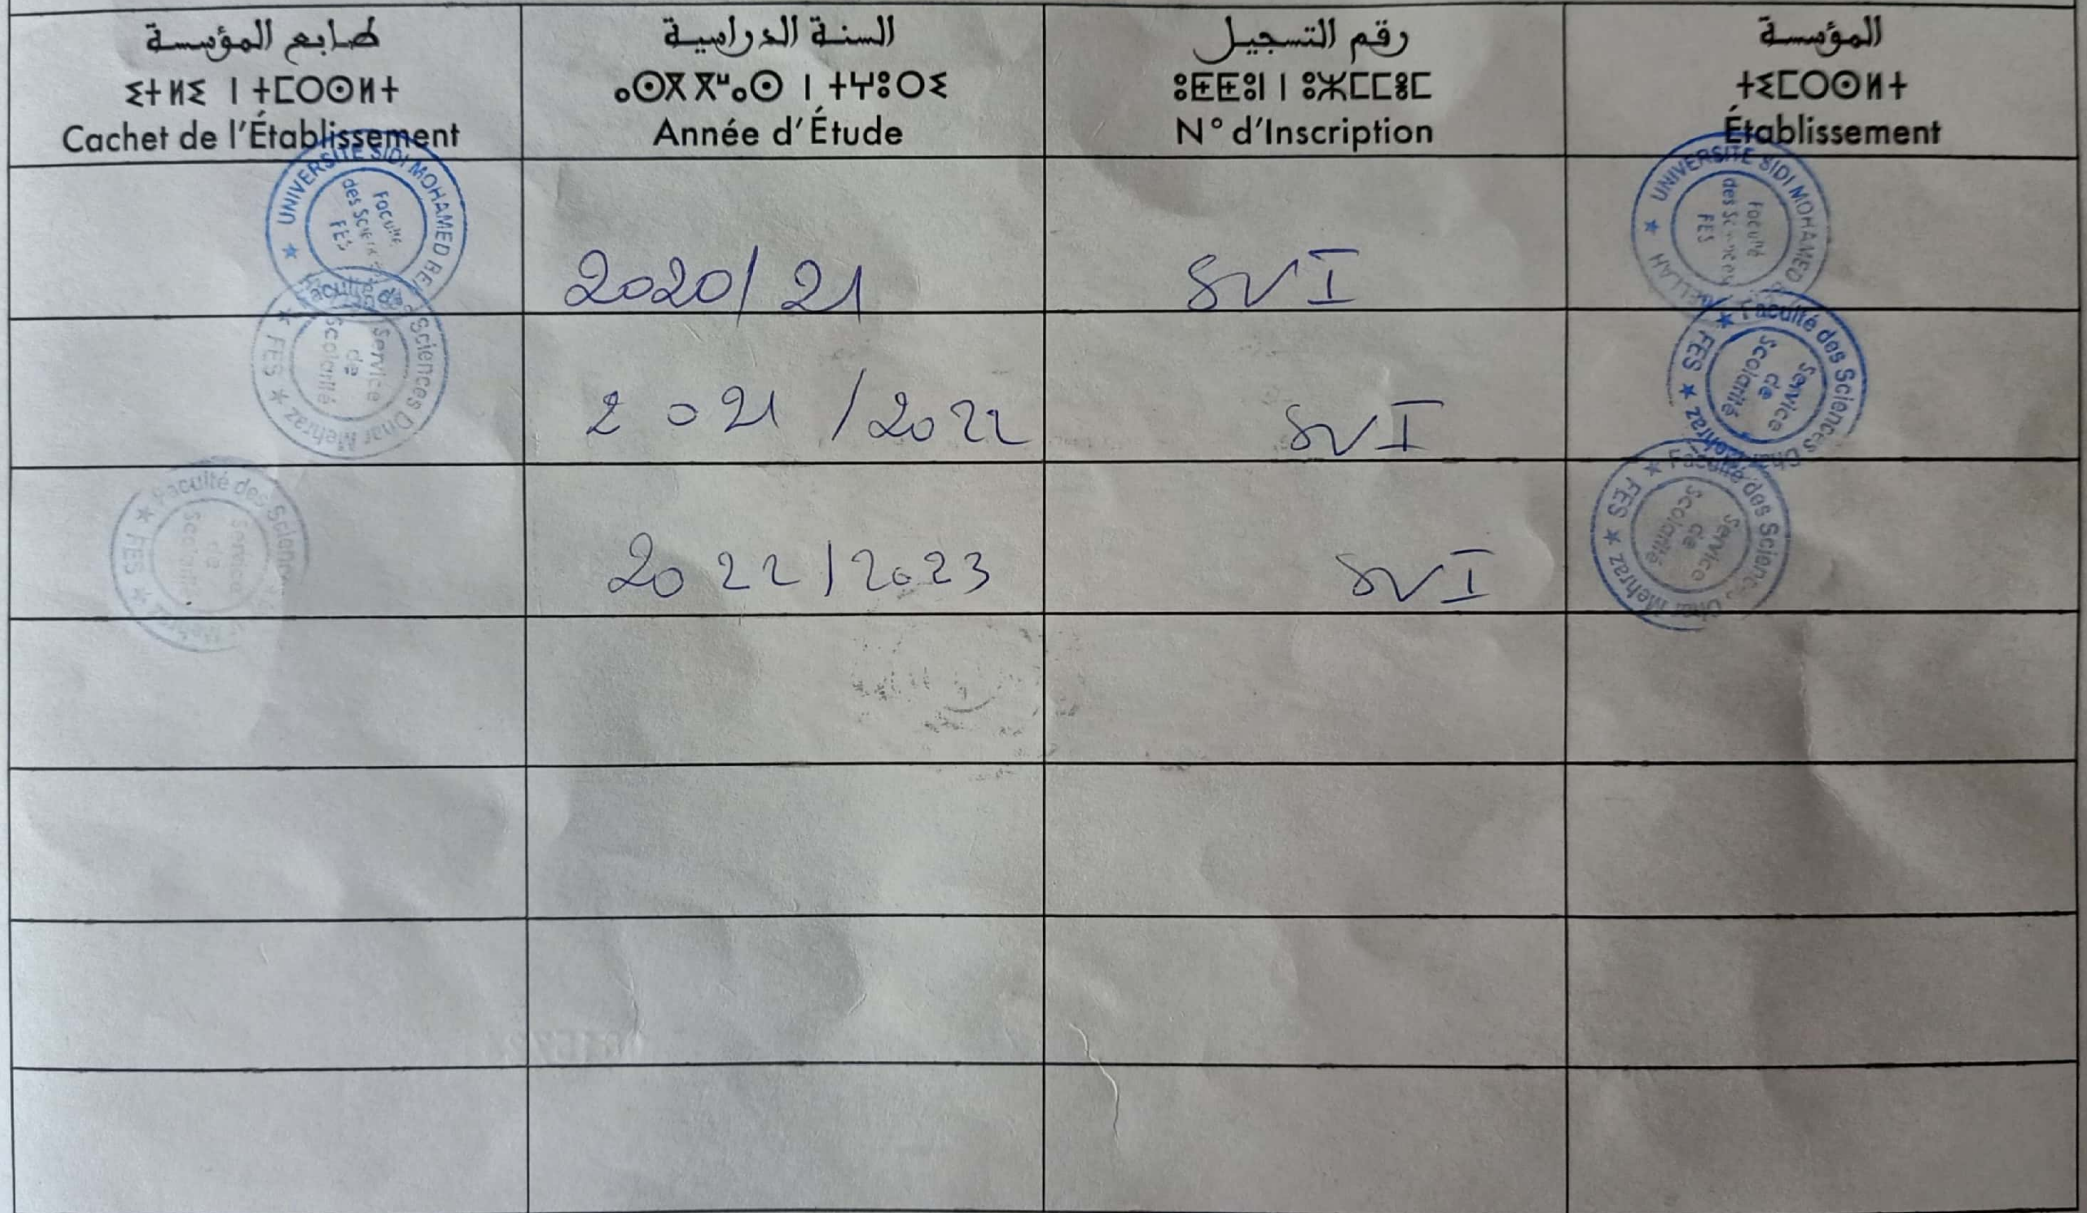 طابع المؤسسة
ⵉⵜⵍⵉ ⵏ ⵜⵎⵔⵙⵍⵜ
Cachet de l'Établissement
السنة الدراسية
ⴰⵙⴳⴳⵯⴰⵙ ⵏ ⵜⵖⵓⵔⵉ
Année d'Étude
رقم التسجيل
ⵓⵟⵟⵓⵏ ⵏ ⵓⵣⵎⵎⴻⵎ
N° d'Inscription
المؤسسة
ⵜⵉⵎⵔⵙⵍⵜ
Établissement
UNIVERSITE SIDI MOHAMED BE
Faculté
des Sciences
FES
2020/21
SVI
UNIVERSITE SIDI MOHAMED BELLAH
Faculté
des Sciences
FES
Faculté des Sciences Dhar Mehraz FES
Service
de
Scolarité
2021/2022
SVI
Faculté des Sciences Dhar Mehraz FES
Service
de
Scolarité
Faculté des Sciences FES
Service
de
Scolarité
2022/2023
SVI
Faculté des Sciences Dhar Mehraz FES
Service
de
Scolarité